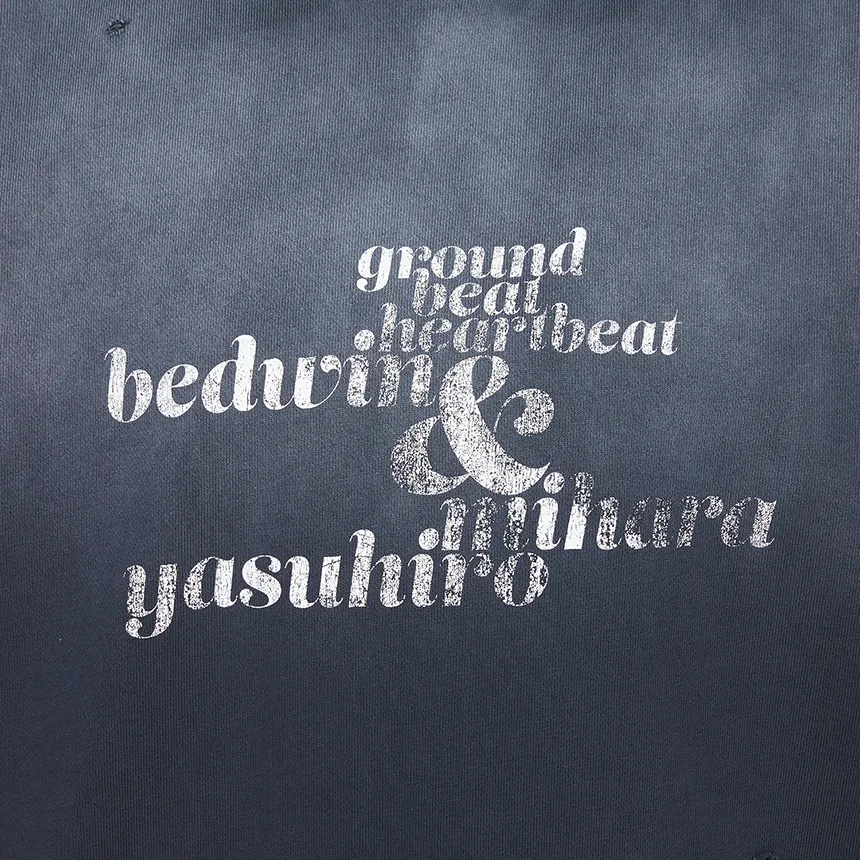 ground
beat
heartbeat
bedwin
&
mihara
yasuhiro